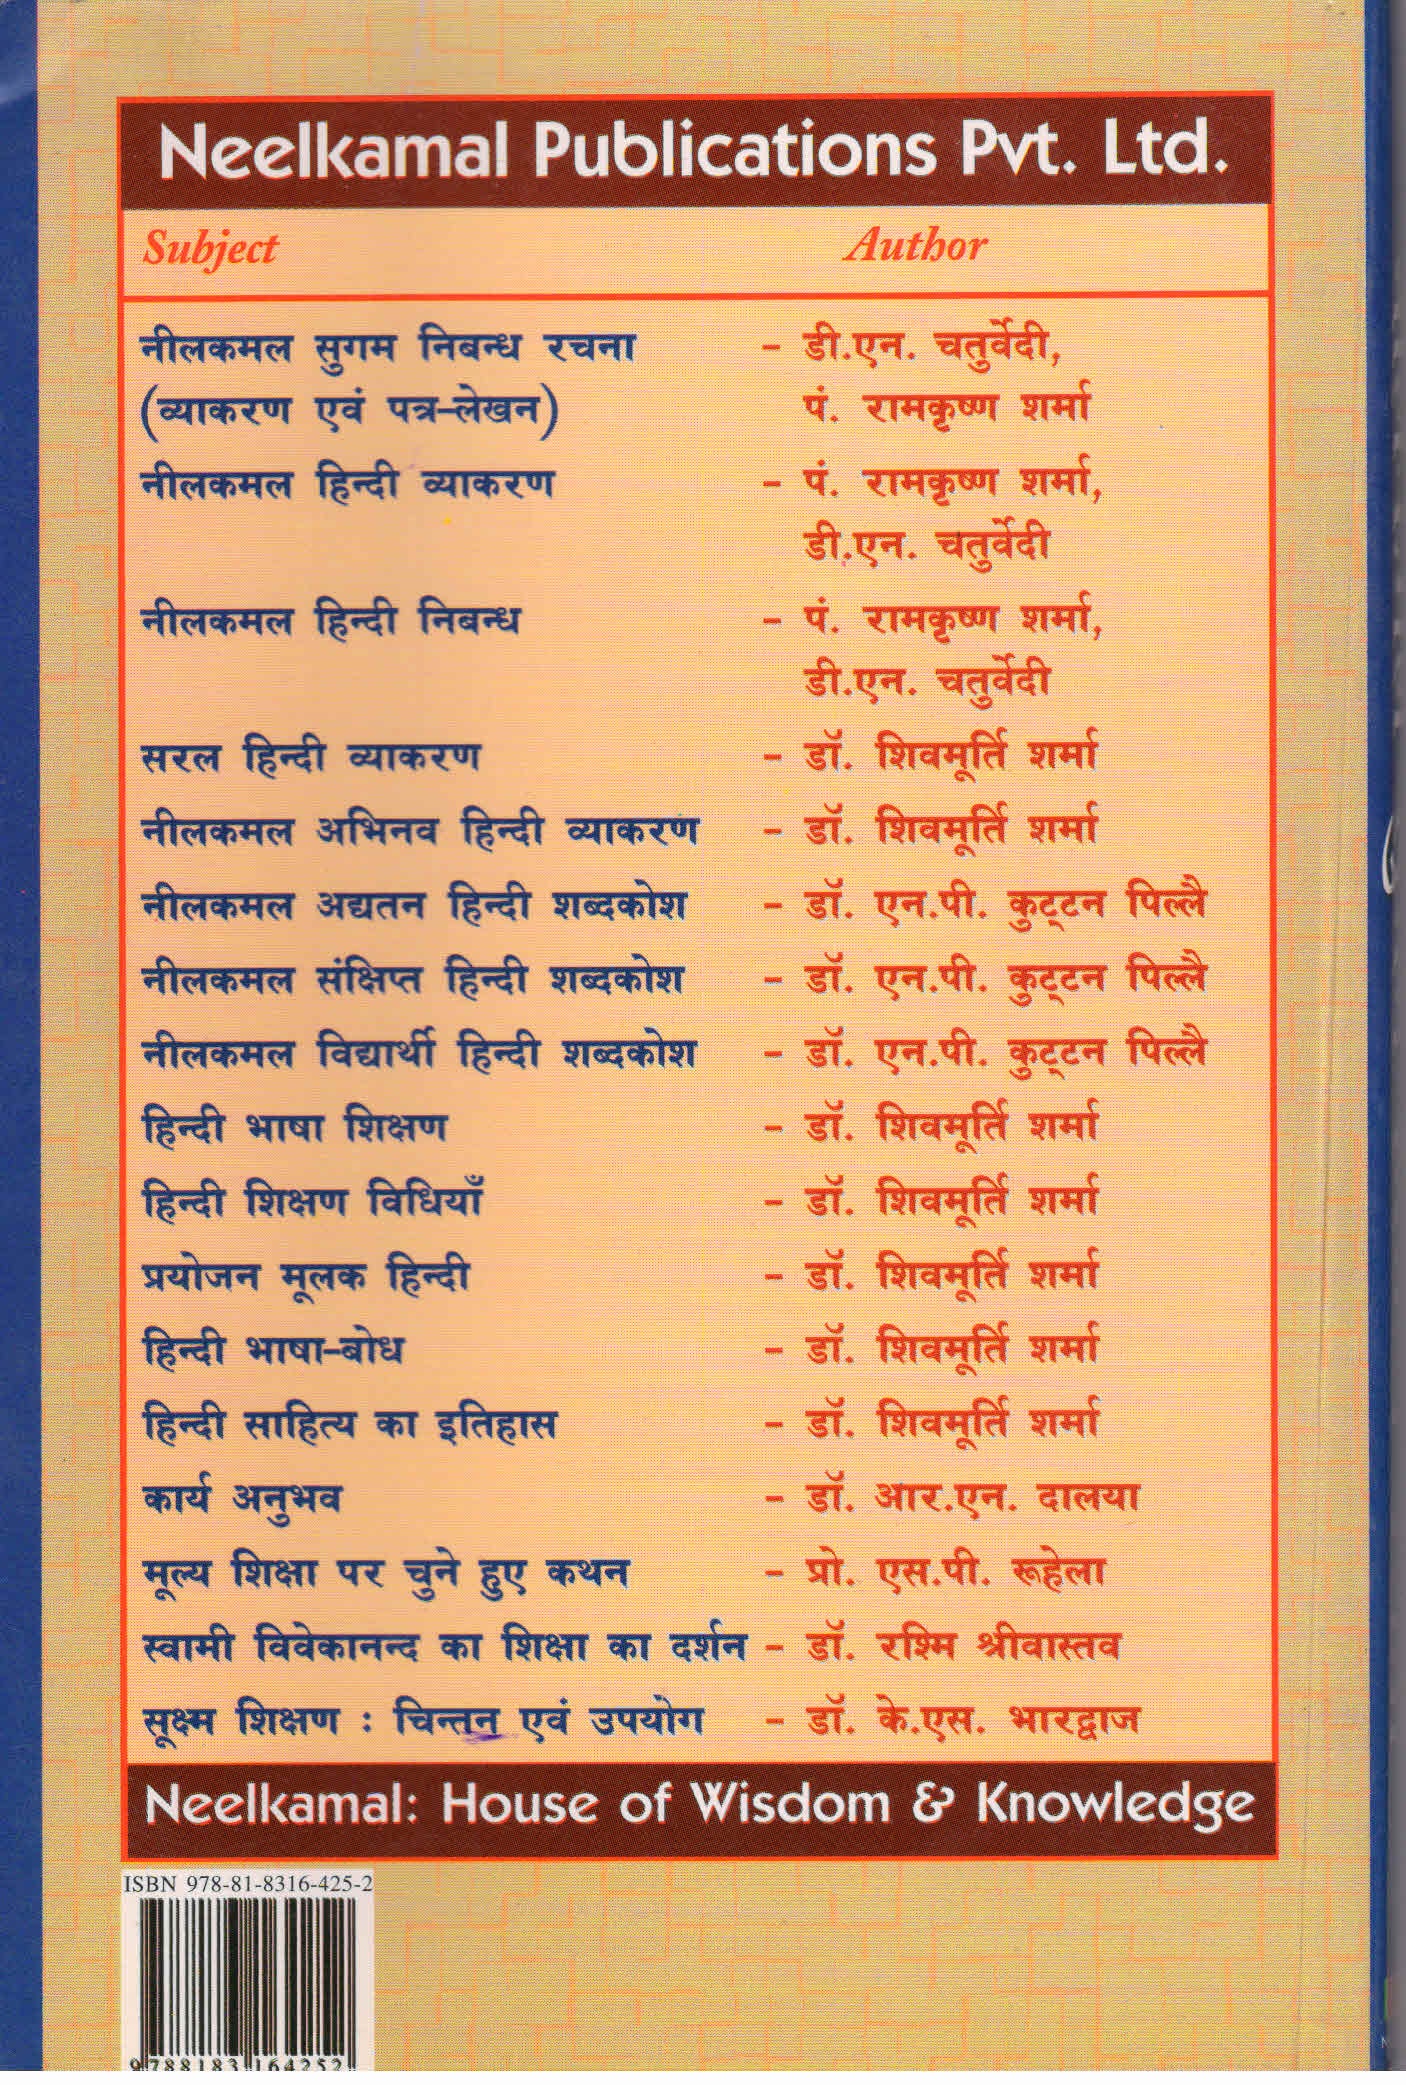 Neelkamal Publications Pvt. Ltd.
Subject Author
नीलकमल सुगम निबन्ध रचना – डी.एन. चतुर्वेदी,
(व्याकरण एवं पत्र-लेखन) पं. रामकृष्ण शर्मा
नीलकमल हिन्दी व्याकरण – पं. रामकृष्ण शर्मा,
डी.एन. चतुर्वेदी
नीलकमल हिन्दी निबन्ध – पं. रामकृष्ण शर्मा,
डी.एन. चतुर्वेदी
सरल हिन्दी व्याकरण – डॉ. शिवमूर्ति शर्मा
नीलकमल अभिनव हिन्दी व्याकरण – डॉ. शिवमूर्ति शर्मा
नीलकमल अद्यतन हिन्दी शब्दकोश – डॉ. एन.पी. कुट्टन पिल्लै
नीलकमल संक्षिप्त हिन्दी शब्दकोश – डॉ. एन.पी. कुट्टन पिल्लै
नीलकमल विद्यार्थी हिन्दी शब्दकोश – डॉ. एन.पी. कुट्टन पिल्लै
हिन्दी भाषा शिक्षण – डॉ. शिवमूर्ति शर्मा
हिन्दी शिक्षण विधियाँ – डॉ. शिवमूर्ति शर्मा
प्रयोजन मूलक हिन्दी – डॉ. शिवमूर्ति शर्मा
हिन्दी भाषा-बोध – डॉ. शिवमूर्ति शर्मा
हिन्दी साहित्य का इतिहास – डॉ. शिवमूर्ति शर्मा
कार्य अनुभव – डॉ. आर.एन. दालया
मूल्य शिक्षा पर चुने हुए कथन – प्रो. एस.पी. रूहेला
स्वामी विवेकानन्द का शिक्षा का दर्शन – डॉ. रश्मि श्रीवास्तव
सूक्ष्म शिक्षण : चिन्तन एवं उपयोग – डॉ. के.एस. भारद्वाज
Neelkamal: House of Wisdom & Knowledge
ISBN 978-81-8316-425-2
9788183164252